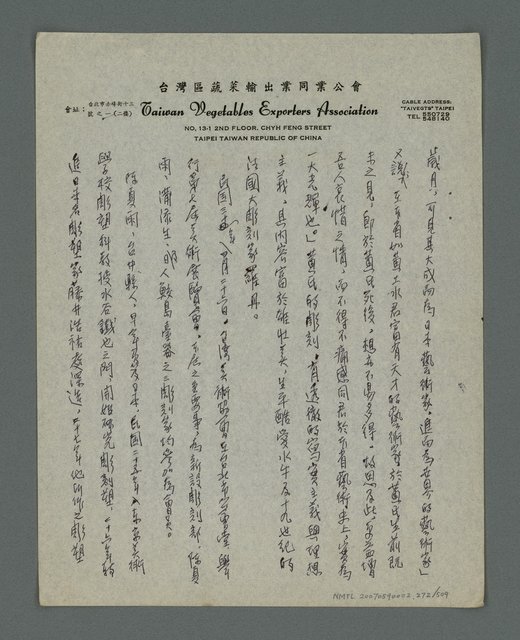 台灣區蔬菜輸出業同業公會
會址：台北市赤峰街十三號之一(二樓)
Taiwan Vegetables Exporters Association
CABLE ADDRESS:
"TAIVEGTS" TAIPEI
TEL 550729
548140
NO. 13-1 2ND FLOOR. CHYH FENG STREET
TAIPEI TAIWAN REPUBLIC OF CHINA
歲月，可見其大成而為日本藝術家，進而為世界的藝術家」
又說 如黃土水君富有天才的藝術家於黃氏生前既
未之見，即於黃氏死後，想亦不易多得，故思及此 益增
吾人哀惜之情，而不得不痛感同君於 藝術史上，實為
一大光輝也。」黃氏的雕刻，有透徹的寫實主義與理想
主義，其內容富於雄壯美，生平酷愛水牛及十九世紀的
法國大雕刻家羅丹。
民國二 年 月二十六日，台灣美術 會在台北市 會堂舉
行第 屆美術展覽會。 屆之重要事，為新設雕刻部，陳夏
雨、蒲添生、日人鮫島臺器之三雕刻家均參加為會員。
陳夏雨，台中縣人，早年 日本，民國二十五年 東京美術
學校雕塑科教授水谷鐵也之門，開始研究雕刻塑，二十六年轉
進日本名雕塑家藤井浩祐處深造，二十七年他所作之雕塑
NMTL 20070590002.272/509